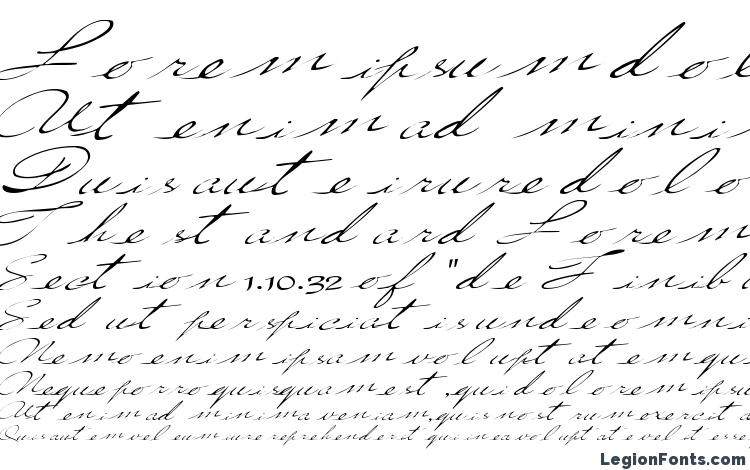 Lorem ipsum dol
Ut enim ad mini
Duis aute irure dolo
The standard Lorem
Section 1.10.32 of "de Finibu
Sed ut perspiciatis unde omni
Nemo enim ipsam voluptatem qu
Neque porro quisquam est, qui dolorem ipsu
Ut enim ad minima veniam, quis nostrum exercita
Quis autem vel eum iure reprehenderit qui in ea voluptate velit esse
LegionFonts.com